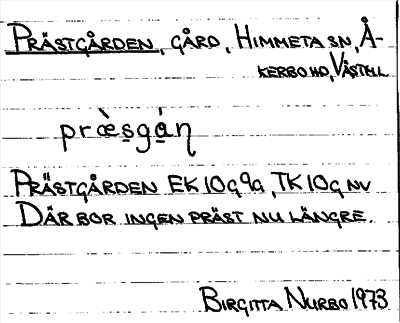 PRÄSTGÅRDEN, GÅRD, HIMMETA SN, Å-
KERBO HD, VÄSTM.
præ̀s̱gá̱ŋ
PRÄSTGÅRDEN EK 10G9a, TK 10G NV
DÄR BOR INGEN PRÄST NU LÄNGRE.
BIRGITTA NURBO 1973